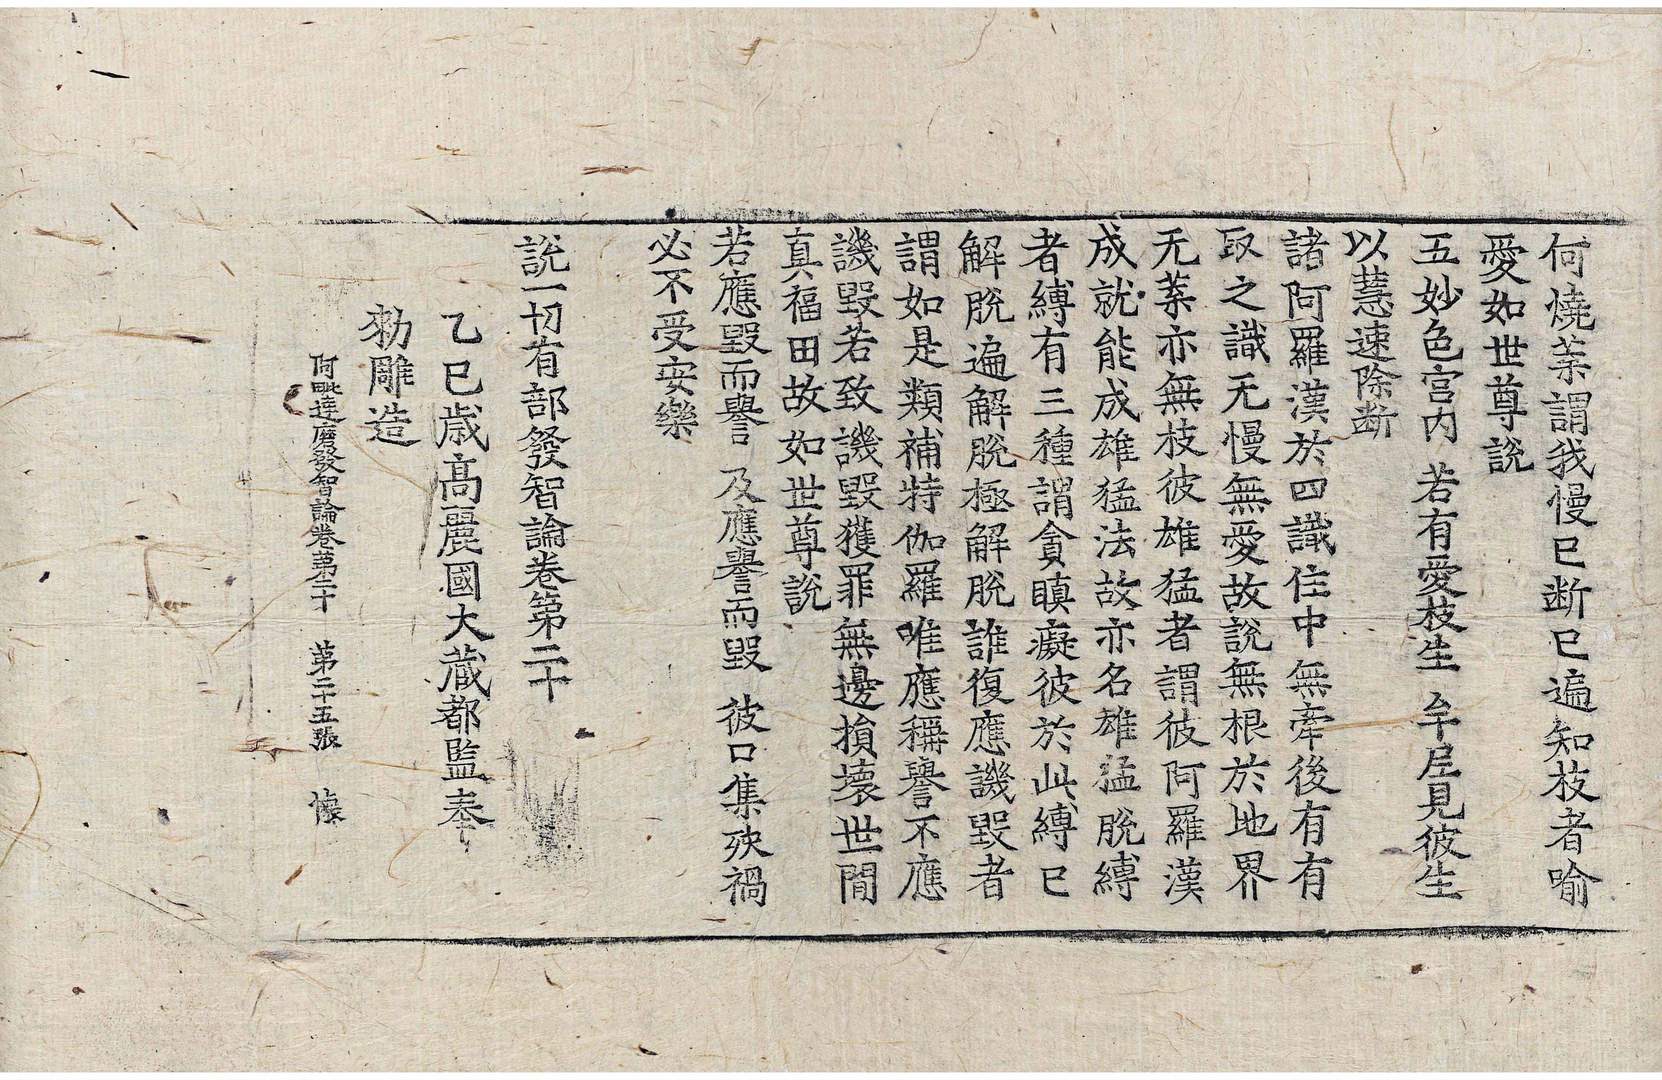 何燒葉謂我慢已断已遍知枝者喻
愛如世尊說
五妙色宫内 若有愛枝生 牟尼見彼生
以慧速除断
諸阿羅漢於四識住中無牽後有有
取之識无慢無愛故說無根於地界
无葉亦無枝彼雄猛者謂彼阿羅漢
成就能成雄猛法故亦名雄猛脫縛
者縛有三種謂貪瞋癡彼於此縛已
解脫遍解脫極解脫誰復應譏毀者
謂如是類補特伽羅唯應稱譽不應
譏毀若致譏毀獲罪無邊損壞世間
真福田故如世尊說
若應毀而譽 及應譽而毀 彼口集殃禍
必不受安樂
說一切有部發智論卷第二十
乙巳歲髙麗國大藏都監奉
勑雕造
阿毗達磨發智論卷第二十 第二十五張 懷